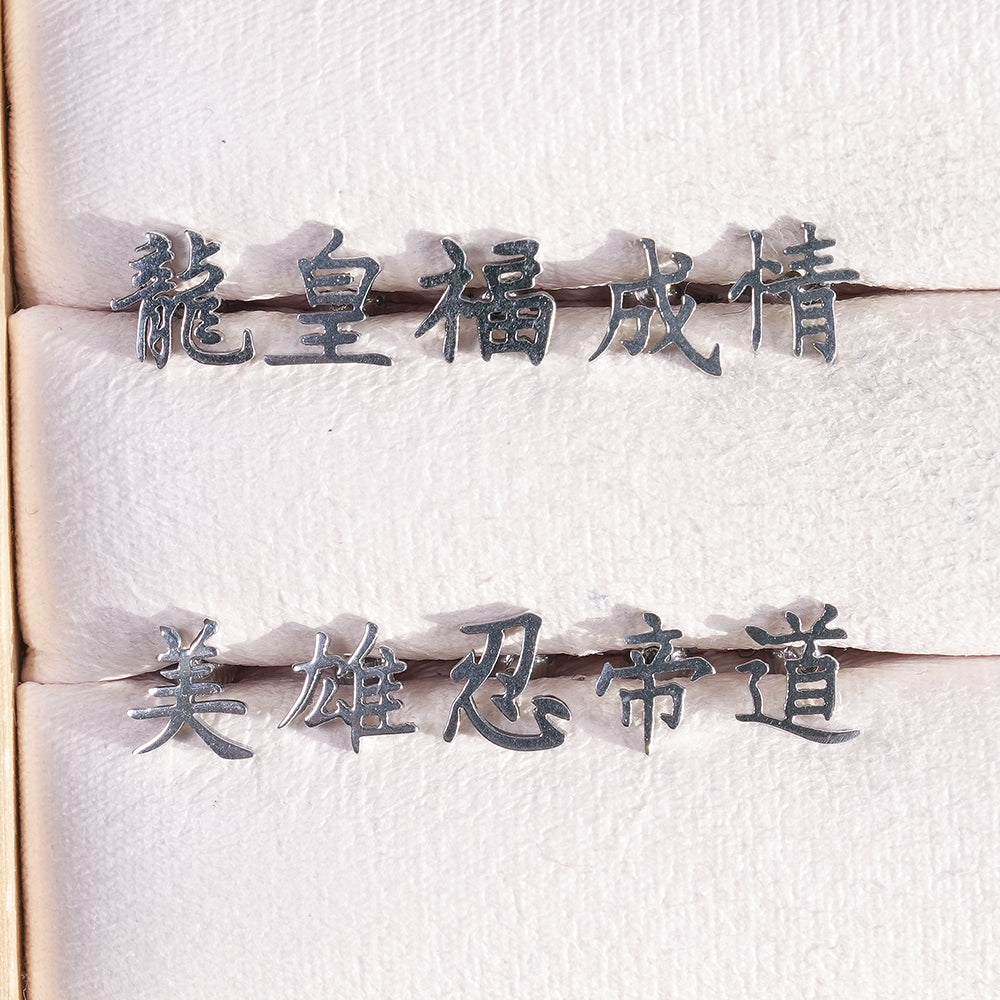 龍皇福成情
美雄忍帝道